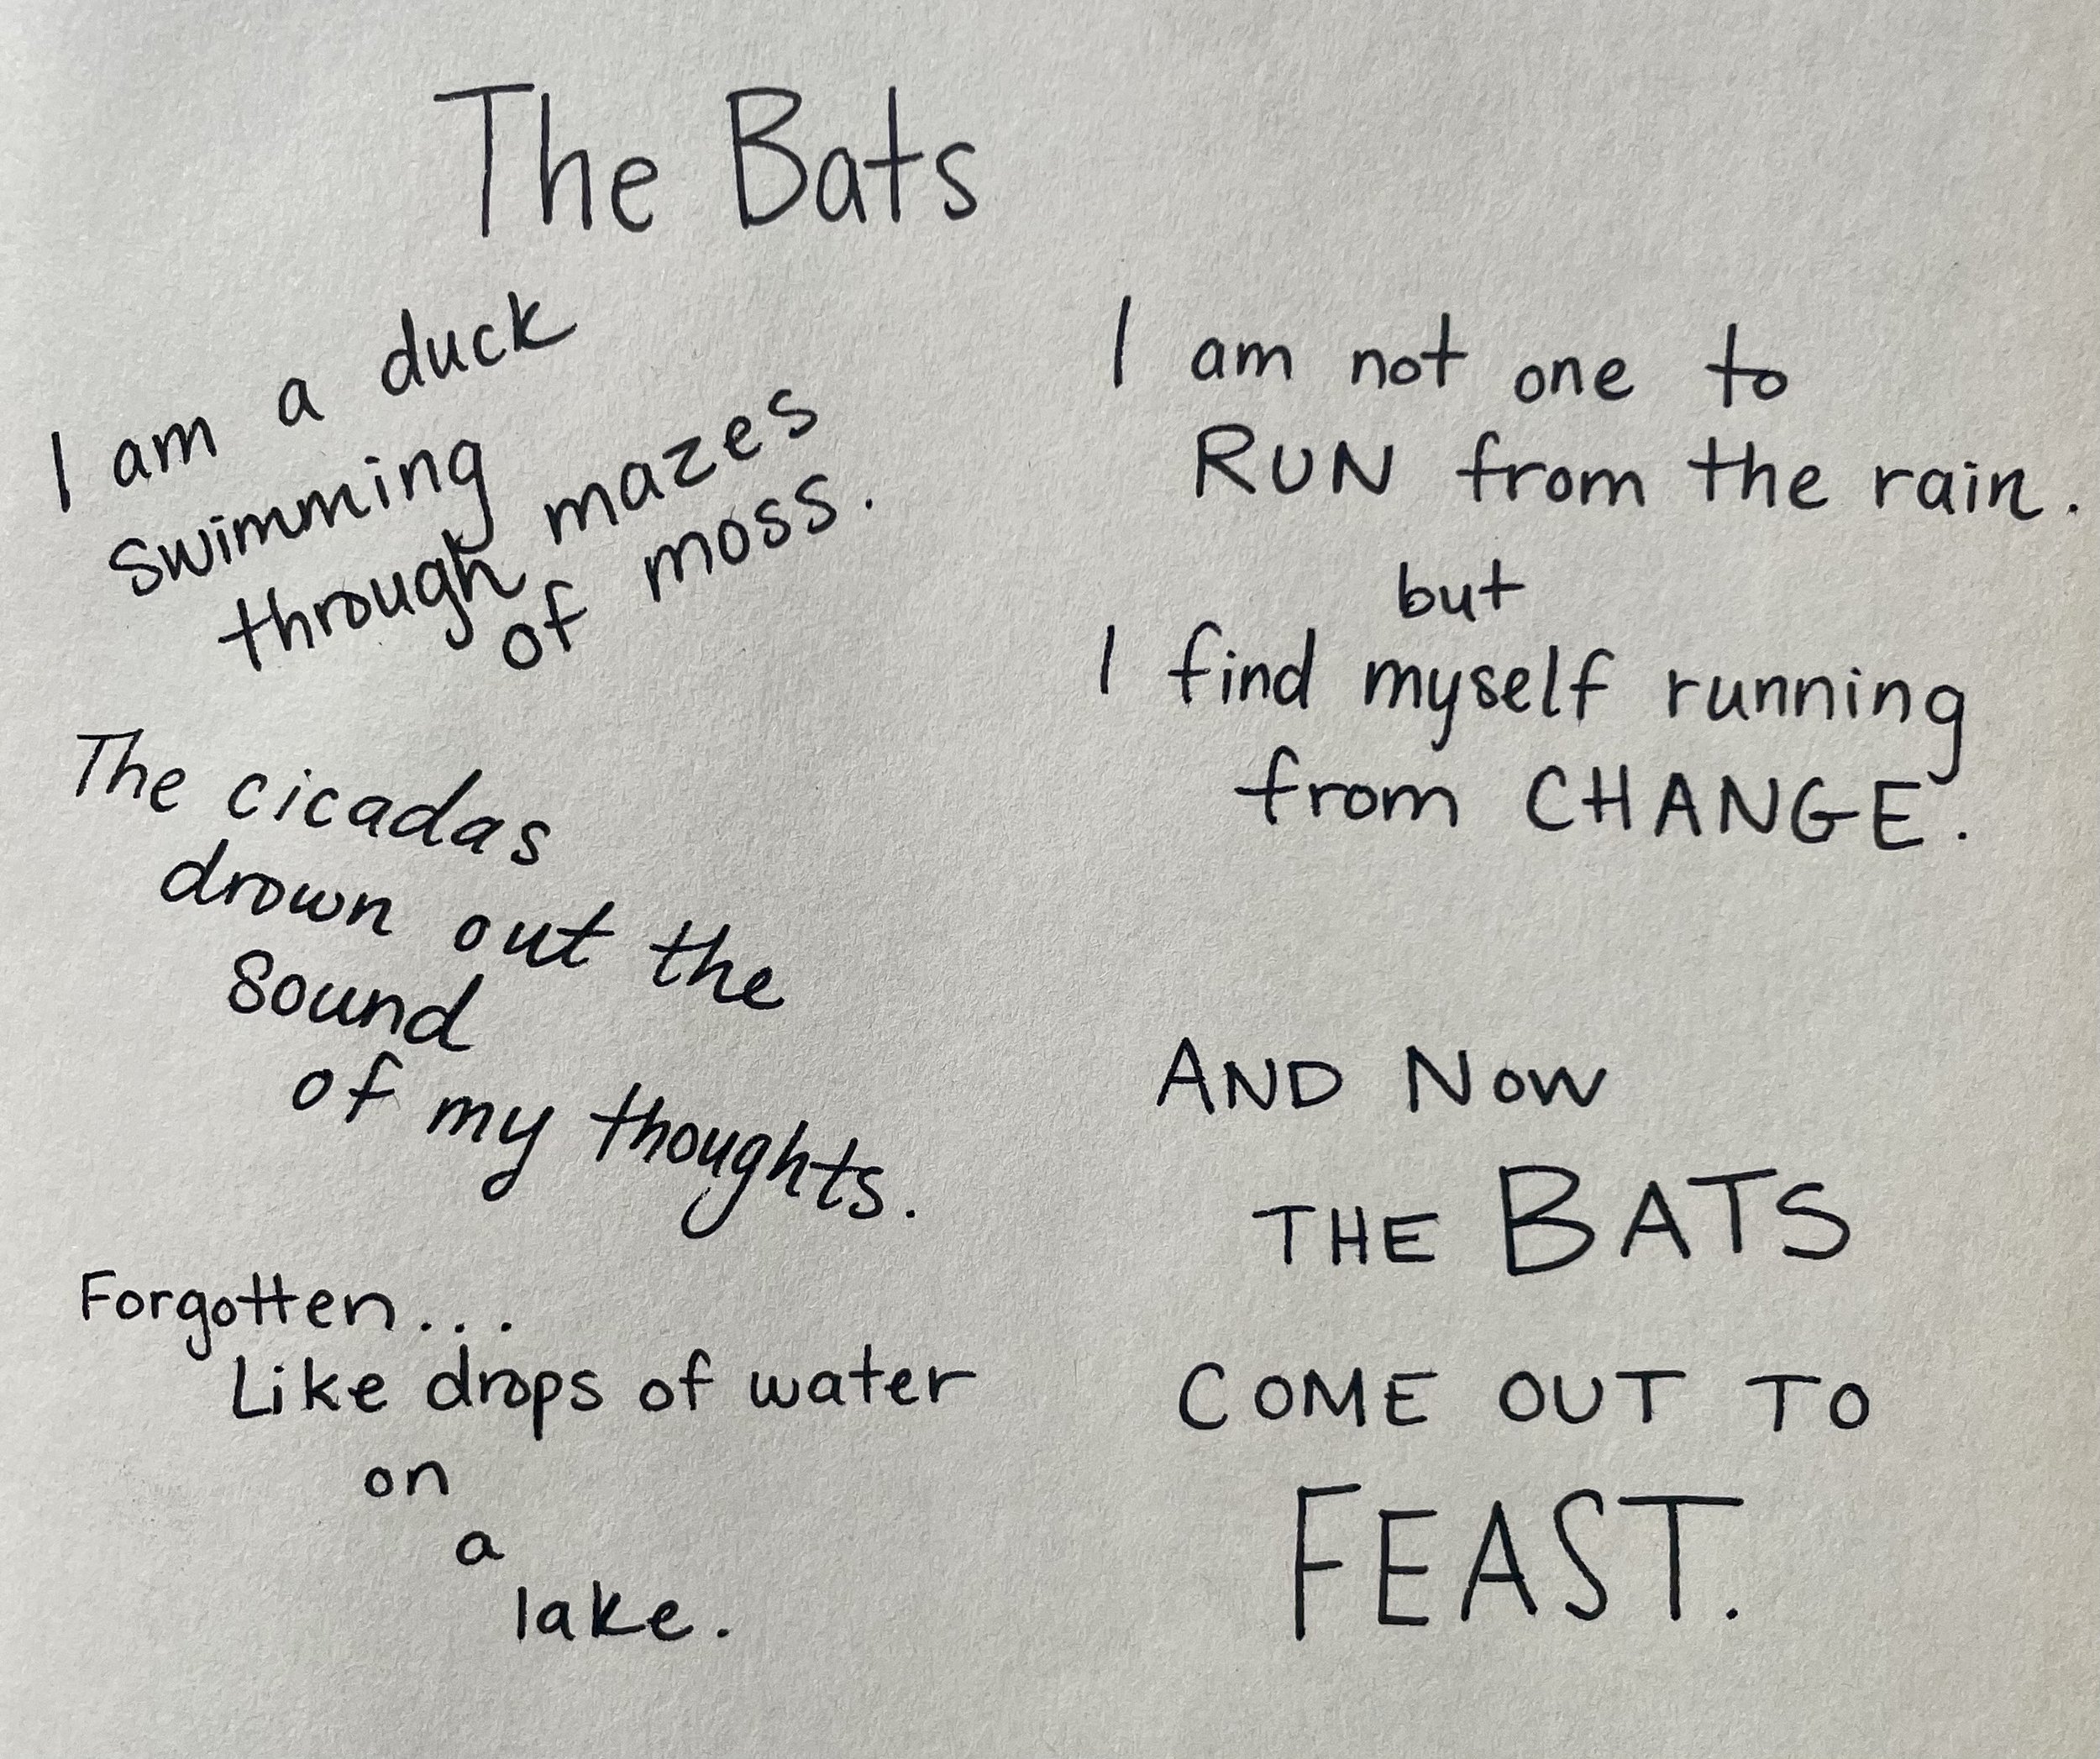 The Bats
I am a duck
swimming
through mazes
of moss.
The cicadas
drown out the
sound
of my thoughts.
Forgotten...
Like drops of water
on
a
lake.
I am not one to
RUN from the rain.
but
I find myself running
from CHANGE.
AND NOW
THE BATS
COME OUT TO
FEAST.